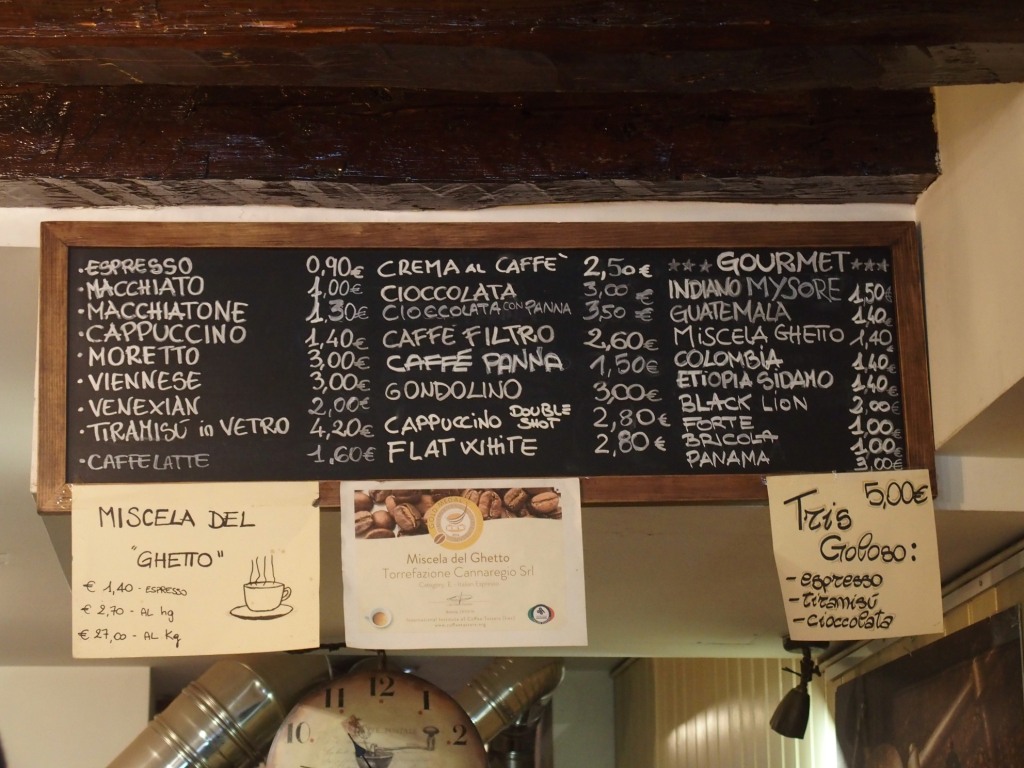 ·ESPRESSO 0,90€
·MACCHIATO 1,00€
·MACCHIATONE 1,30€
·CAPPUCCINO 1,40€
·MORETTO 3,00€
·VIENNESE 3,00€
·VENEXIAN 2,00€
·TIRAMISÚ in VETRO 4,20€
·CAFFELATTE 1,60€
CREMA AL CAFFE` 2,50€
CIOCCOLATA 3,00 €
CIOCCOLATA CON PANNA 3,50 €
CAFFE FILTRO 2,60€
CAFFÉ PANNA 1,50€
GONDOLINO 3,00€
CAPPUCCINO DOUBLE SHOT 2,80€
FLAT WHITE 2,80€
*** GOURMET ***
INDIANO MYSORE 1,50€
GUATEMALA 1,40€
MISCELA GHETTO 1,40
COLOMBIA 1,40€
ETIOPIA SIDAMO 1,40€
BLACK LION 2,00€
FORTE 1,00€
BRICOLA 1,00€
PANAMA 3,00€
MISCELA DEL
"GHETTO"
€ 1,40 - ESPRESSO
€ 2,70 - AL hg
€ 27,00 - AL Kg
Miscela del Ghetto
Torrefazione Cannaregio Srl
5,00€
Tris
Goloso:
- espresso
- tiramisú
- cioccolata
10 11 12 1 2